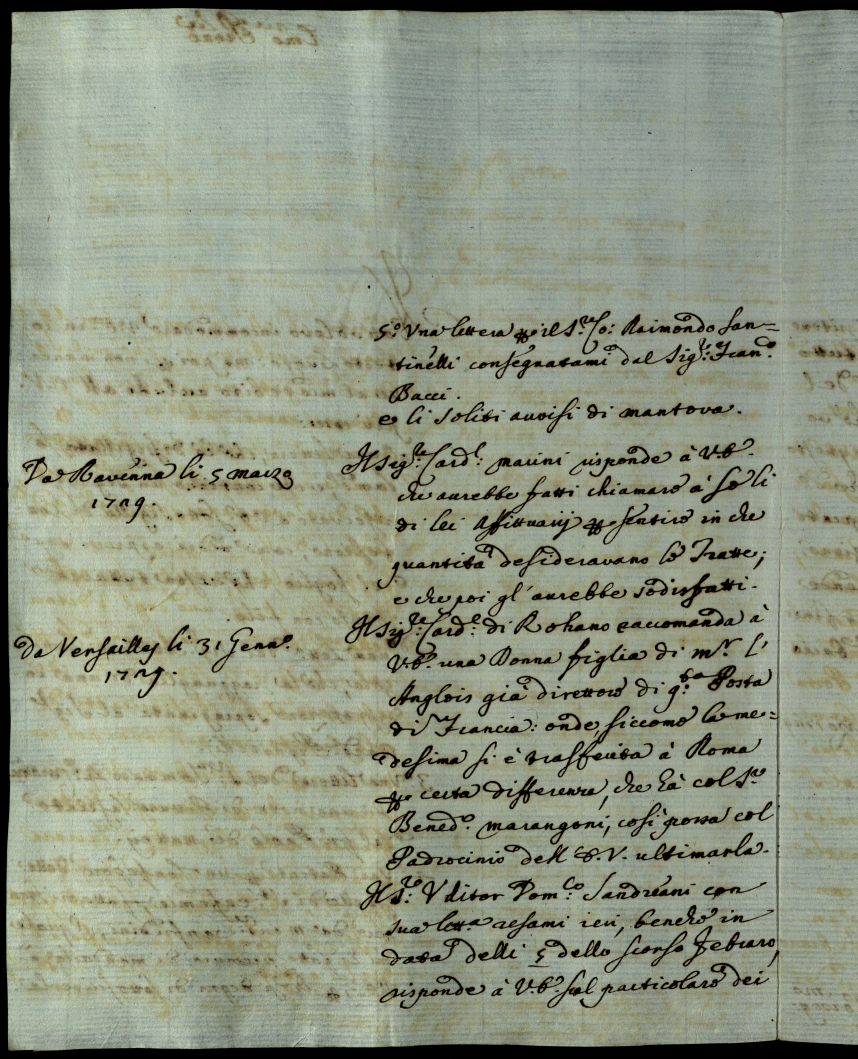 5.° Vna lettera p il S.re Co: Raimondo San=
tinelli consegnatami dal Sig.r Fran.co
Bacci.
e li soliti auuisi di mantova.
Da Ravenna li 5 marzo
1729.
Il Sig.re Card.l marini risponde à V.E.
che aurebbe fatti chiamare à se li
di lei Affittuarij p sentire in che
quantità desideravano le Tratte;
e che poi gl'aurebbe sodisfatti.
Da Versailles li 31 Genn.o
1729.
Il Sig.re Card.l di Rohano raccomanda à
V.E. una Donna figlia di m.r l'
Anglois già direttore di q.sta Posta
di Francia: onde, siccome la me=
desima si è trasferita à Roma
p certa differenza, che hà col S.re
Bened.o marangoni, così possa col
Padrocinio dell'E.V. ultimarla.
Il S.re Vditor Dom.co Sandreani con
sua lett.a resami ieri, benche in
data delli 5 dello scorso Febraro,
risponde à V.E. sul particolare dei